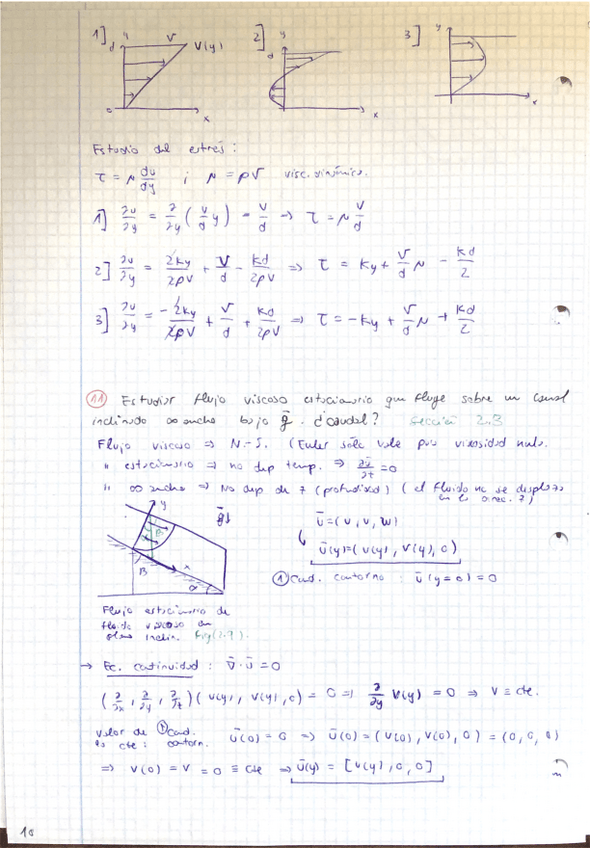 1] y d V V(y) o x
2] y d x
3] y x
Estudio del estrés:
τ = μ du/dy ; μ = ρν visc. dinámica.
1] ∂u/∂y = ∂/∂y (V/d y) = V/d ⇒ τ = μ V/d
2] ∂u/∂y = 2ky/2ρν + V/d - kd/2ρν ⇒ τ = ky + V/d μ - kd/2
3] ∂u/∂y = -2ky/2ρν + V/d + kd/2ρν ⇒ τ = -ky + V/d μ + kd/2
11 Estudiar flujo viscoso estacionario que fluye sobre un canal
inclinado ∞ ancho bajo g. ¿caudal? Sección 2.3
Flujo viscoso ⇒ N-S. (Euler sólo vale para viscosidad nula.
" estacionario ⇒ no dep temp. ⇒ ∂u/∂t = 0
" ∞ ancho ⇒ No dep de z (profundidad) (el fluido no se desplaza
en la direc. z)
y g x B α
ū = (u, v, w)
ū(y) = (u(y), v(y), 0)
① Cond. contorno : ū(y=0) = 0
Flujo estacionario de
fluido viscoso en
plano inclin. Fig(2.9).
→ Ec. continuidad : ∇·ū = 0
(∂/∂x, ∂/∂y, ∂/∂z)(u(y), v(y), 0) = 0 ⇒ ∂/∂y v(y) = 0 ⇒ v ≡ cte.
valor de ① cond.
la cte: contorn. ū(0) = 0 ⇒ ū(0) = (u(0), v(0), 0) = (0, 0, 0)
⇒ v(0) = v = 0 ≡ cte ⇒ ū(y) = [u(y), 0, 0]
10